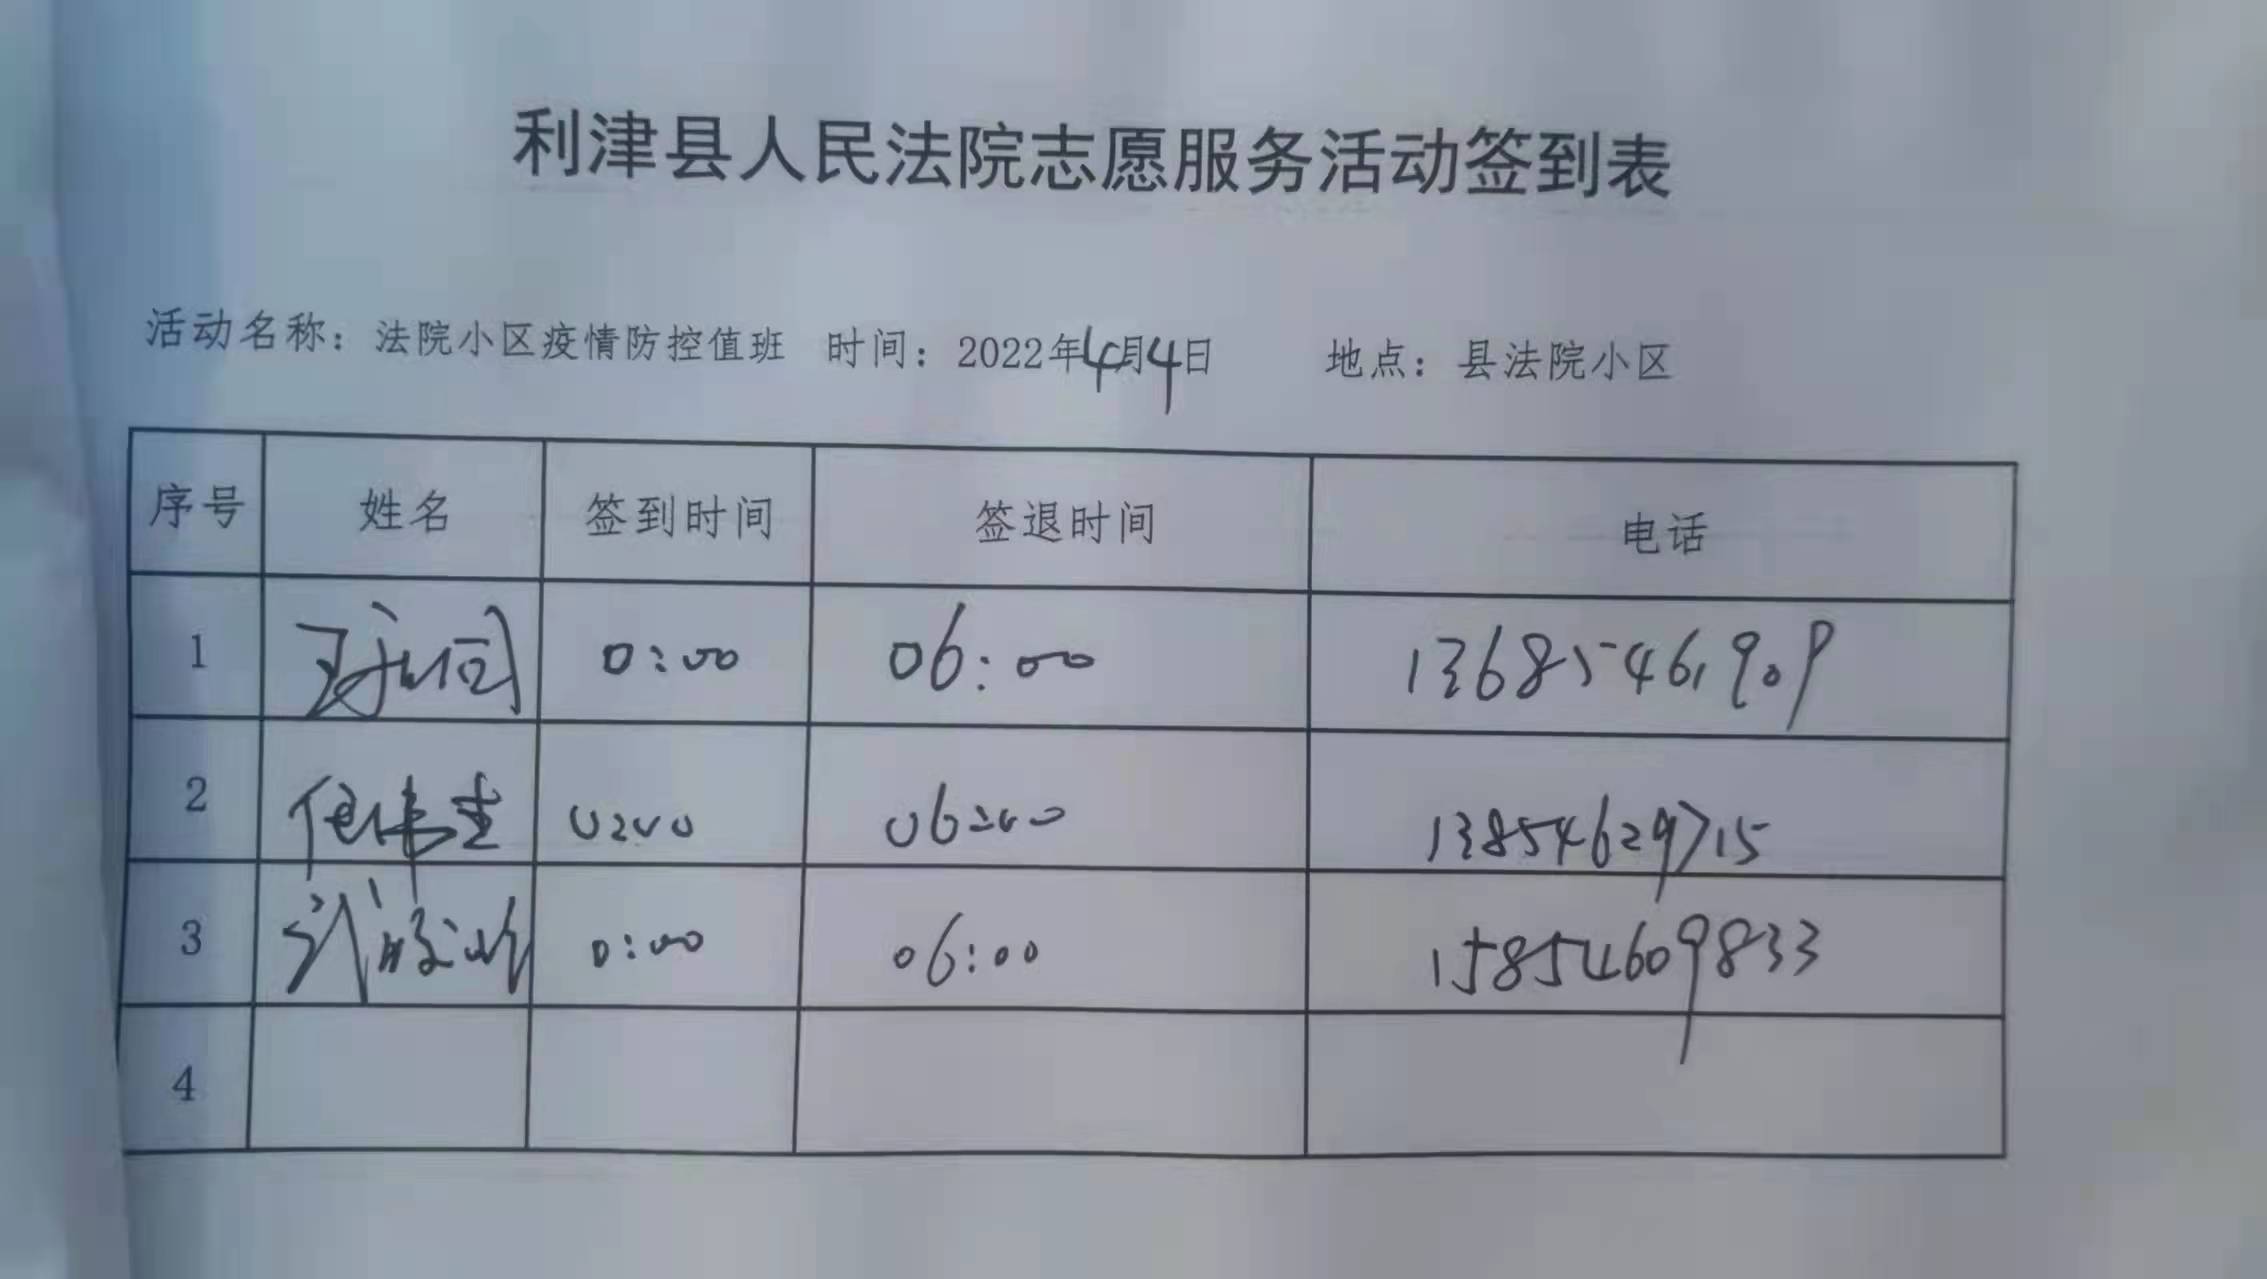 利津县人民法院志愿服务活动签到表
活动名称：法院小区疫情防控值班 时间：2022年4月4日 地点：县法院小区
序号 姓名 签到时间 签退时间 电话
1 0:00 06:00 13685461909
2 0:00 06:00 13854629715
3 0:00 06:00 15854609833
4